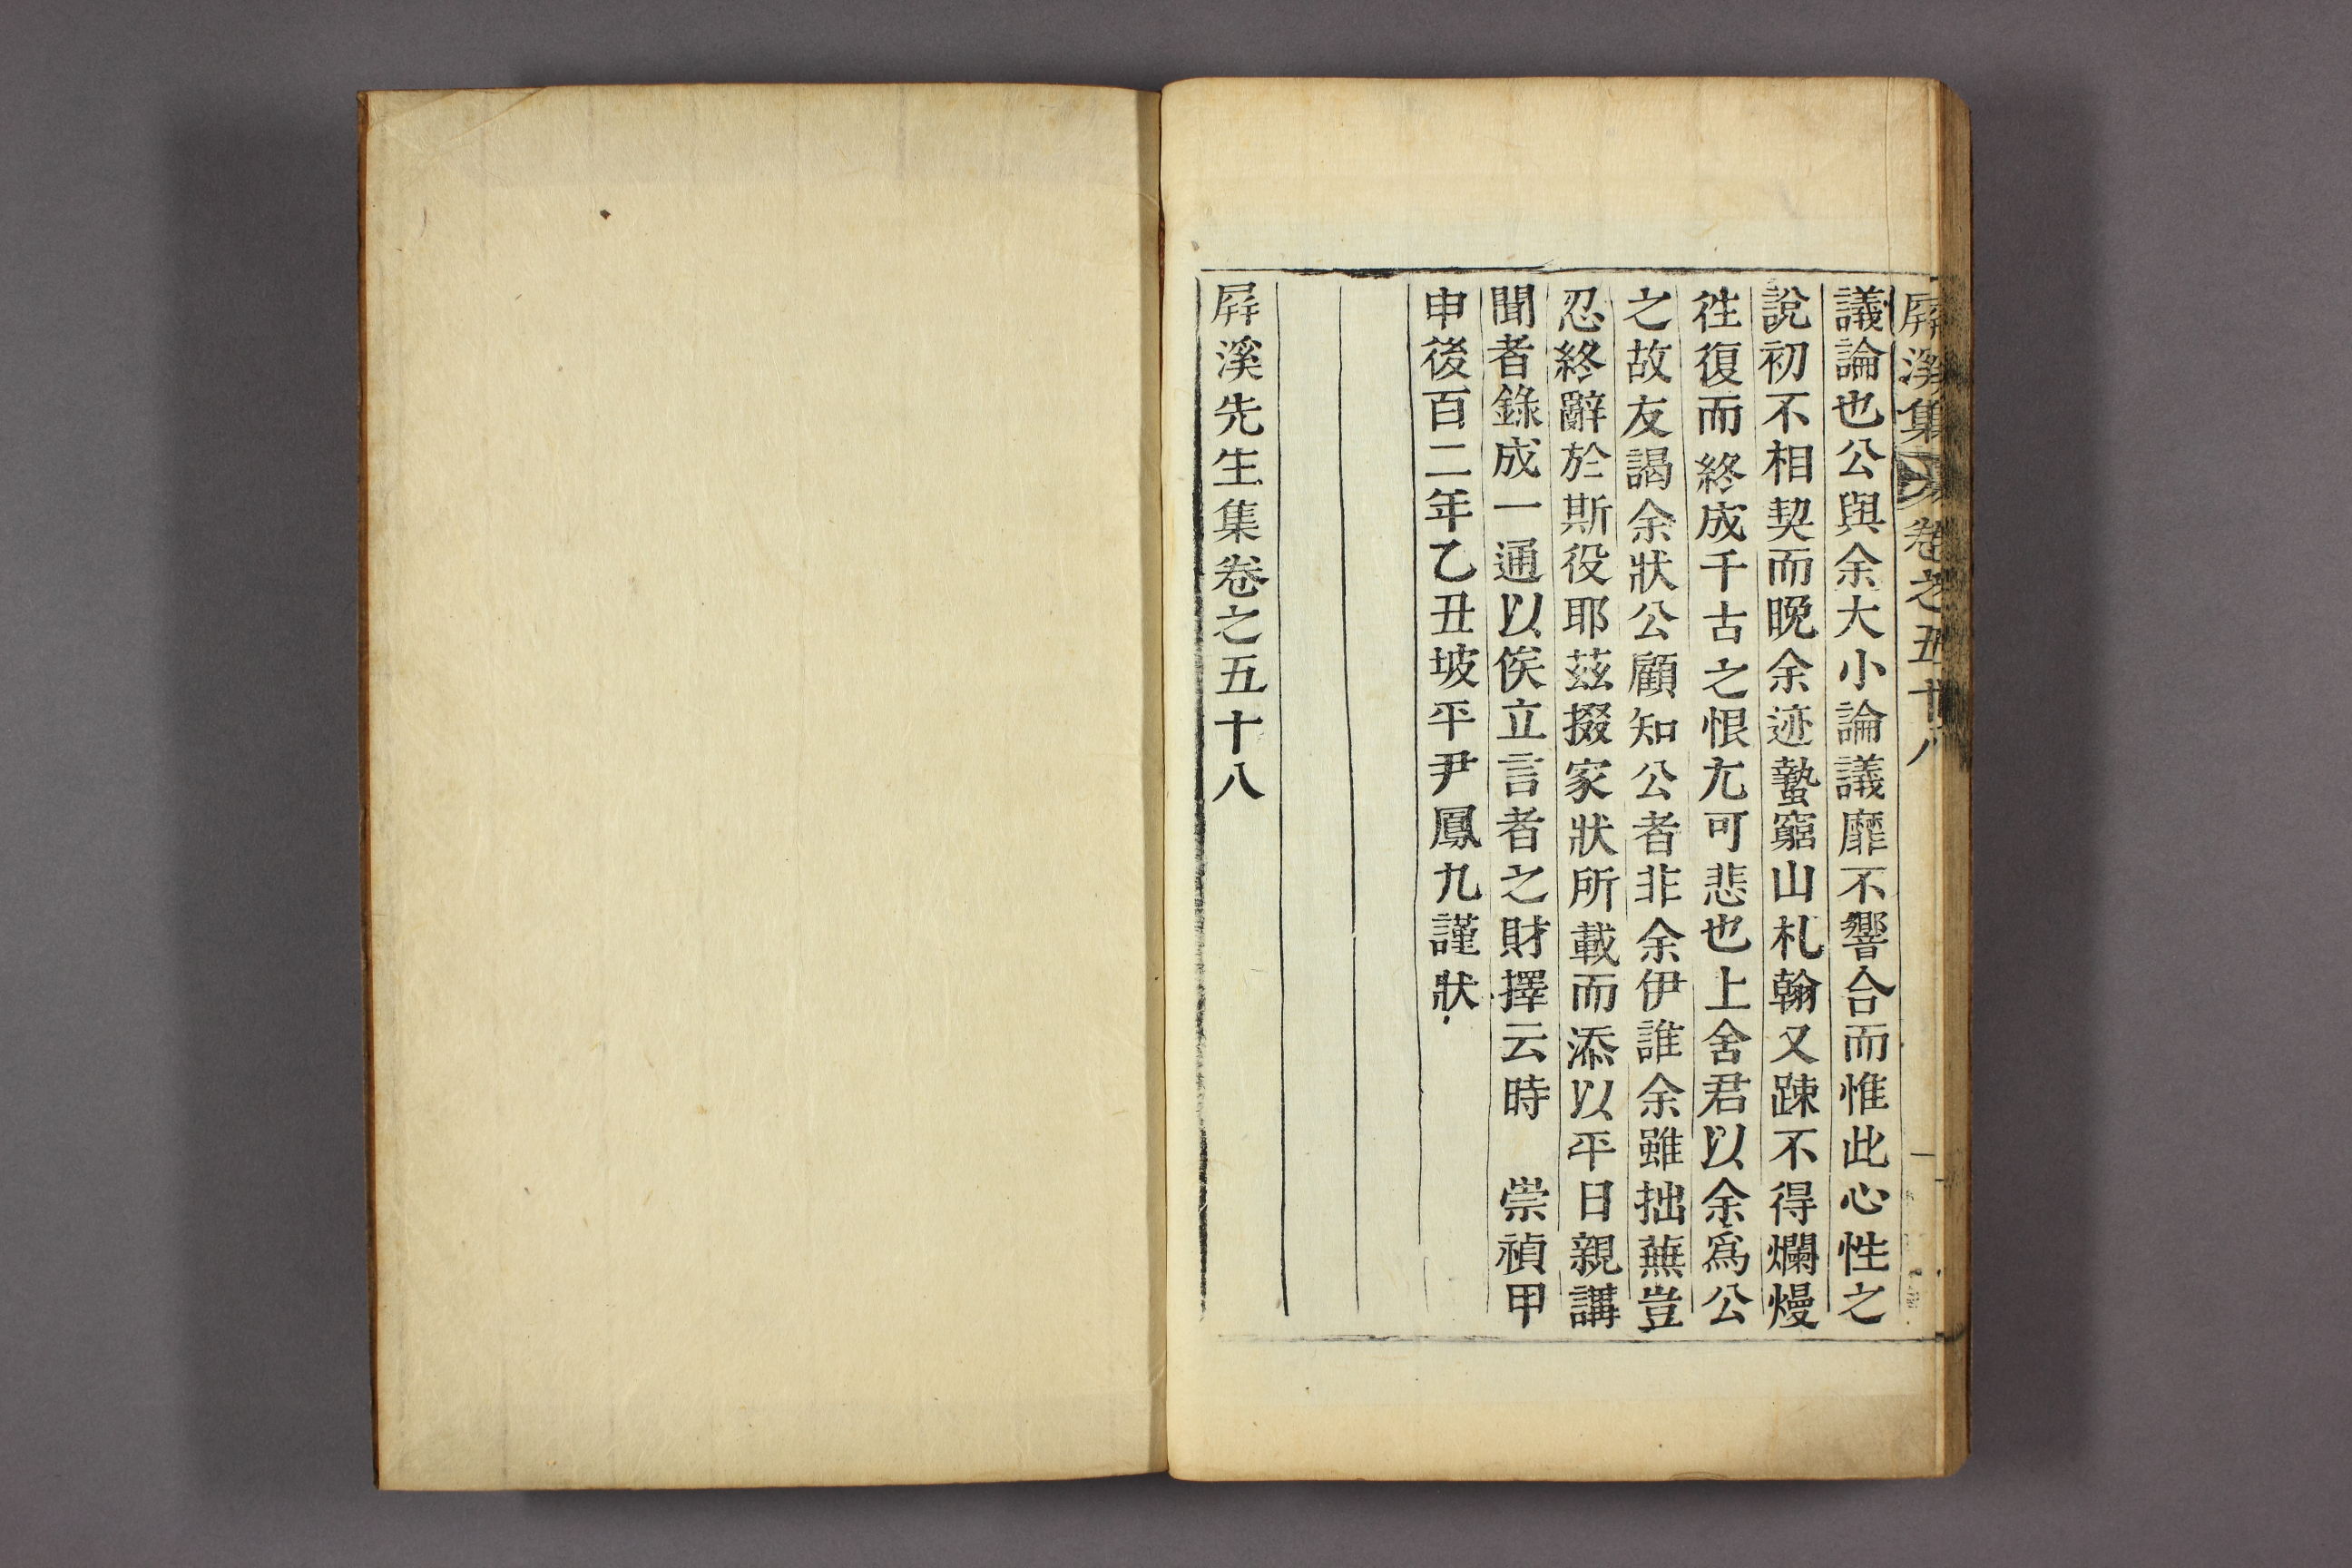 屛溪集 卷之五十八
議論也公與余大小論議靡不響合而惟此心性之
說初不相契而晩余迹蟄窮山札翰又踈不得爛熳
徃復而終成千古之恨尤可悲也上舍君以余爲公
之故友謁余狀公顧知公者非余伊誰余雖拙蕪豈
忍終辭於斯役耶茲掇家狀所載而添以平日親講
聞者錄成一通以俟立言者之財擇云時　崇禎甲
申後百二年乙丑坡平尹鳳九謹狀
屛溪先生集卷之五十八